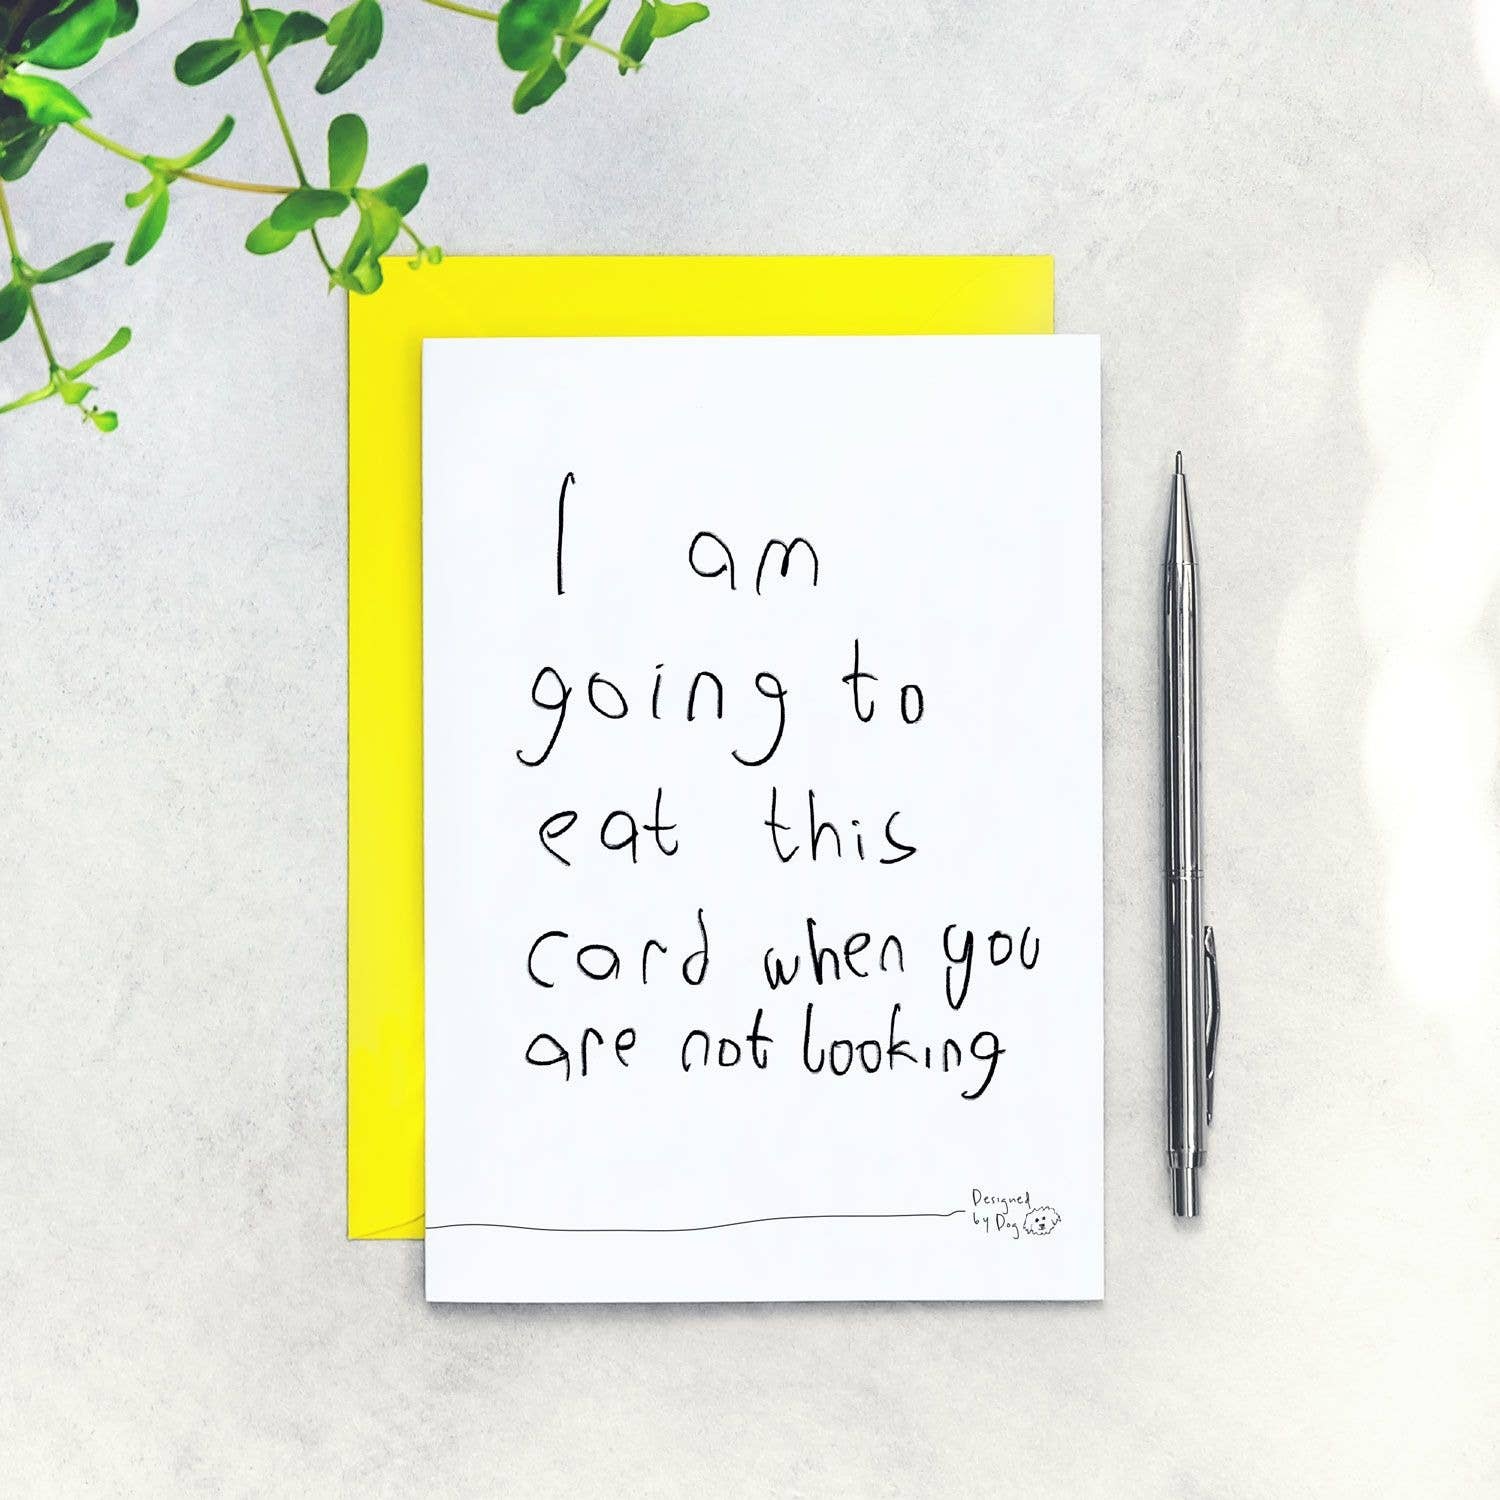 I am
going to
eat this
card when you
are not looking
Designed
by Dog